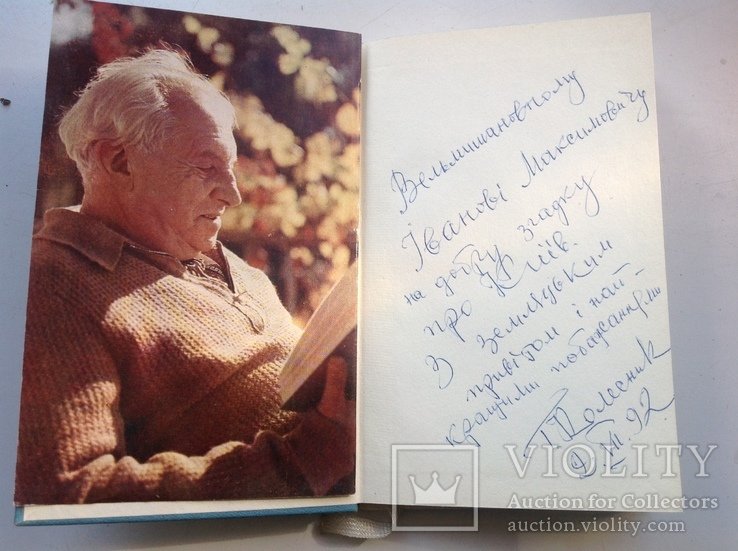 Вельмишановному
Іванові Максимовичу
на добру згадку
про Київ.
З земляцьким
привітом і най-
кращими побажаннями
П. Колесник
VII 92
VIOLITY
Auction for Collectors
auction.violity.com